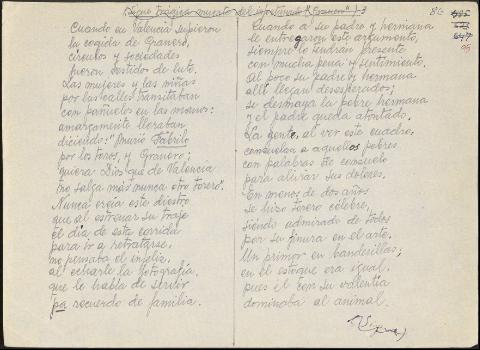 Sigue trágica muerte del Vte. "Granero") -3
Cuando en Valencia supieron
la cogida de Granero,
círculos y sociedades
fueron vestidos de luto.
Las mujeres y las niñas
por las calles transitaban
con pañuelos en las manos:
amargamente lloraban
diciendo: "Murió Fabrilo
por los toros, y Granero;
quiera Dios que de Valencia
no salga más nunca otro torero".
Nunca creía este diestro
que al estrenar su traje
el día de esta corrida
para ir a retratarse,
no pensaba el infeliz
al echarle la fotografía
que le había de servir
pa recuerdo de familia.
Cuando a su padre y hermana
le entregaron este argumento,
siempre lo tendrán presente
con mucha pena y sentimiento.
Al poco su padre y hermana
allí llegan desesperados;
se desmaya la pobre hermana
y el padre queda atontado.
La gente, al ver este cuadro,
consuelan a aquellos pobres
con palabras de consuelo
para aliviar sus dolores.
En menos de dos años
se hizo torero célebre,
siendo admirado de todos
por su finura en el arte.
Un primor en bandesillas;
en el estoque era igual,
pues él con su valentía
dominaba al animal.